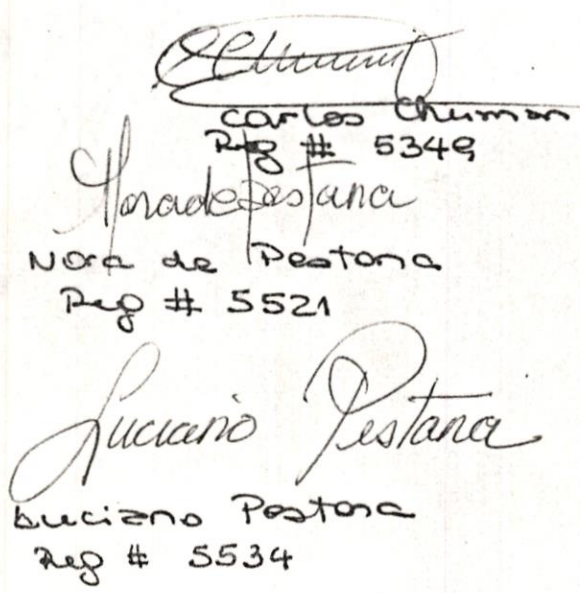 Carlos Chuman
Reg # 5349
Nora de Pestana
Nora de Pestana
Reg # 5521
Luciano Pestana
Luciano Pestana
Reg # 5534